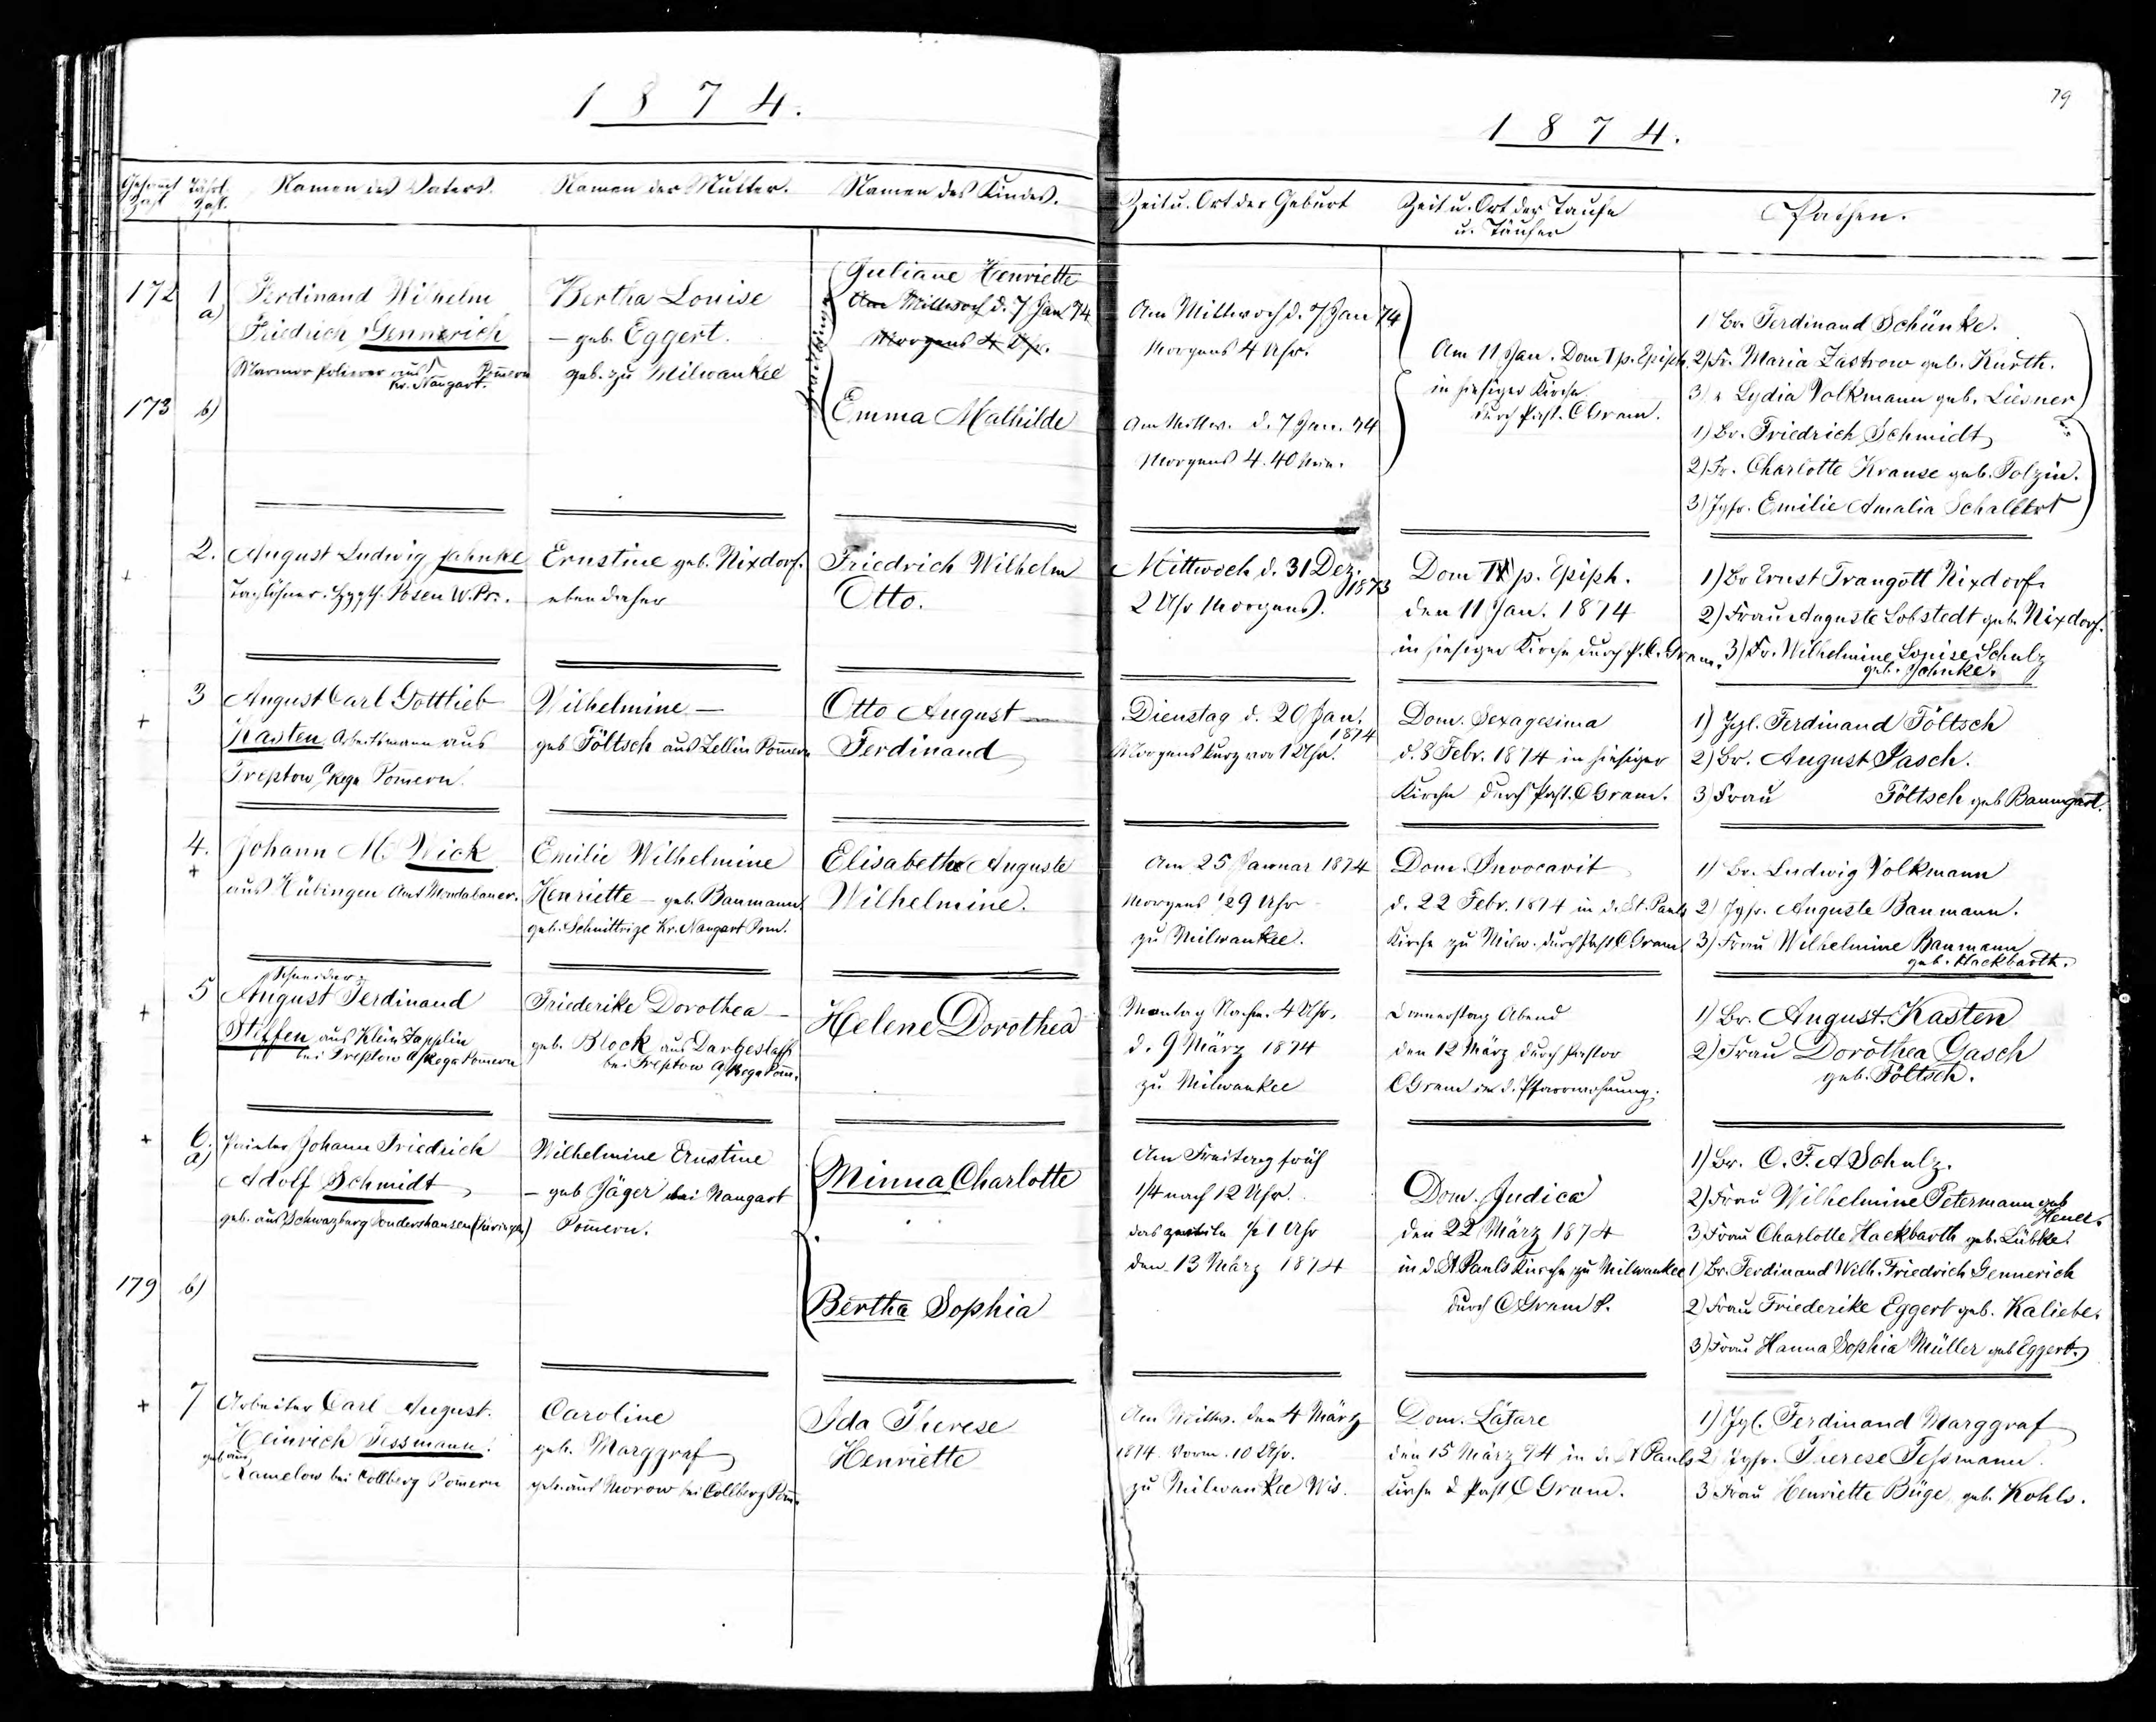 1874.
Gesamt Zahl
Jährl. Zahl.
Namen des Vaters.
Namen der Mutter.
Namen des Kindes.
172
1 a)
Ferdinand Wilhelm
Friedrich Gennerich
Marmor Polierer aus Pom̄ern
Kr. Naugart.
Bertha Louise
– geb. Eggert.
geb. zu Milwaukee
Zwillinge
Juliane Henriette
Am Mittwoch d. 7 Jan 74
Morgens 4 Uhr.
173
b)
Emma Mathilde
2.
August Ludwig Jahnke
Taglöhner. Posen W. Pr.
Ernstine geb. Nixdorf.
ebendaher
Friedrich Wilhelm
Otto.
3
August Carl Gottlieb
Kasten Arbeitsmann aus
Treptow a/Rega Pom̄ern.
Wilhelmine –
geb Föltsch aus Zellin Pom̄ern
Otto August
Ferdinand
4.
Johann M. Wick
aus Hübingen Amt
Emilie Wilhelmine
Henriette – geb. Baumann.
geb. Schnittrige Kr. Naugart Pom.
Elisabeth Auguste
Wilhelmine.
5
Schneider
August Ferdinand
Steffen aus Klein Zapplin
bei Treptow a/Rega Pom̄ern
Friederike Dorothea –
geb. Block aus Dargeslaff
bei Treptow a/Rega Pom̄.
Helene Dorothea
6. a)
Painter Johann Friedrich
Adolf Schmidt
geb. aus Schwarzburg Sondershausen (Thüringen)
Wilhelmine Ernstine
– geb Jäger bei Naugart
Pom̄ern.
Minna Charlotte
179
b)
Bertha Sophia
7
Arbeiter Carl August.
Heinrich Tessmann.
geb aus
Ramelow bei Collberg Pom̄ern
Caroline
geb. Marggraf
geb. aus Morow bei Collberg Pom̄.
Ida Therese
Henriette
79
1874.
Zeit u. Ort der Geburt
Zeit u. Ort der Taufe
u. Täufer
Pathen.
Am Mittwoch d. 7 Jan 74
Morgens 4 Uhr.
Am 11 Jan. Dom I p. Epiph.
in hiesiger Kirche
durch Past. C Gram.
1) Br. Ferdinand Schünke.
2) Fr. Maria Zastrow geb. Kurth.
3) " Lydia Volkmann geb. Liesner
Am Mittw. d. 7 Jan. 74
Morgens 4.40 Min.
1) Br. Friedrich Schmidt
2) Fr. Charlotte Krause geb. Tolzin.
3) Jgfr. Emilie Amalia
Mittwoch d. 31 Dez.
1873
2 Uhr Morgens.
Dom I p. Epiph.
den 11 Jan. 1874
in hiesiger Kirche durch P. C. Gram.
1) Br Ernst Traugott Nixdorf.
2) Frau Auguste Lobstedt geb. Nixdorf.
3) Fr. Wilhelmine Louise Schulz
geb. Jahnke.
Dienstag d. 20 Jan.
1874
Morgens kurz vor 1 Uhr.
Dom. Sexagesima
d. 8 Febr. 1874 in hiesiger
Kirche durch Past. C Gram.
1) Jgl. Ferdinand Föltsch
2) Br. August Jasch.
3) Frau Föltsch geb Baumgart.
Am 25 Januar 1874
Morgens ½9 Uhr
zu Milwaukee.
Dom. Invocavit
d. 22 Febr. 1874 in d. St. Pauls
Kirche zu Milw. durch Past C Gram
1) Br. Ludwig Volkmann
2) Jgfr. Auguste Baumann.
3) Frau Wilhelmine Baumann
geb. Hackbarth.
Montag Nachm. 4 Uhr,
d. 9 März 1874
zu Milwaukee
Donnerstag Abend
den 12 März durch Pastor
C Gram in d. Pfarrwohnung.
1) Br. August Kasten
2) Frau Dorothea Gasch
geb. Föltsch.
Am Freitag früh
1/4 nach 12 Uhr.
das zweite ½ 1 Uhr
den 13 März 1874
Dom. Judica
den 22 März 1874
in d. St Pauls Kirche zu Milwaukee
durch C Gram P.
1) Br. C. F. A Schulz.
2) Frau Wilhelmine Petermann geb
3) Frau Charlotte Hackbarth geb. Lübke.
1) Br. Ferdinand Wilh. Friedrich Gennerich
2) Frau Friederike Eggert geb. Kaliebe.
3) Frau Hanna Sophia Müller geb Eggert.
Am Mittw. den 4 März
1874 Vorm. 10 Uhr.
zu Milwaukee Wis.
Dom. Lätare
den 15 März 74 in d. St Pauls
Kirche d Past C Gram.
1) Jgl. Ferdinand Marggraf
2) Jgfr. Therese Tessmann.
3 Frau Henriette Büge geb. Kohls.